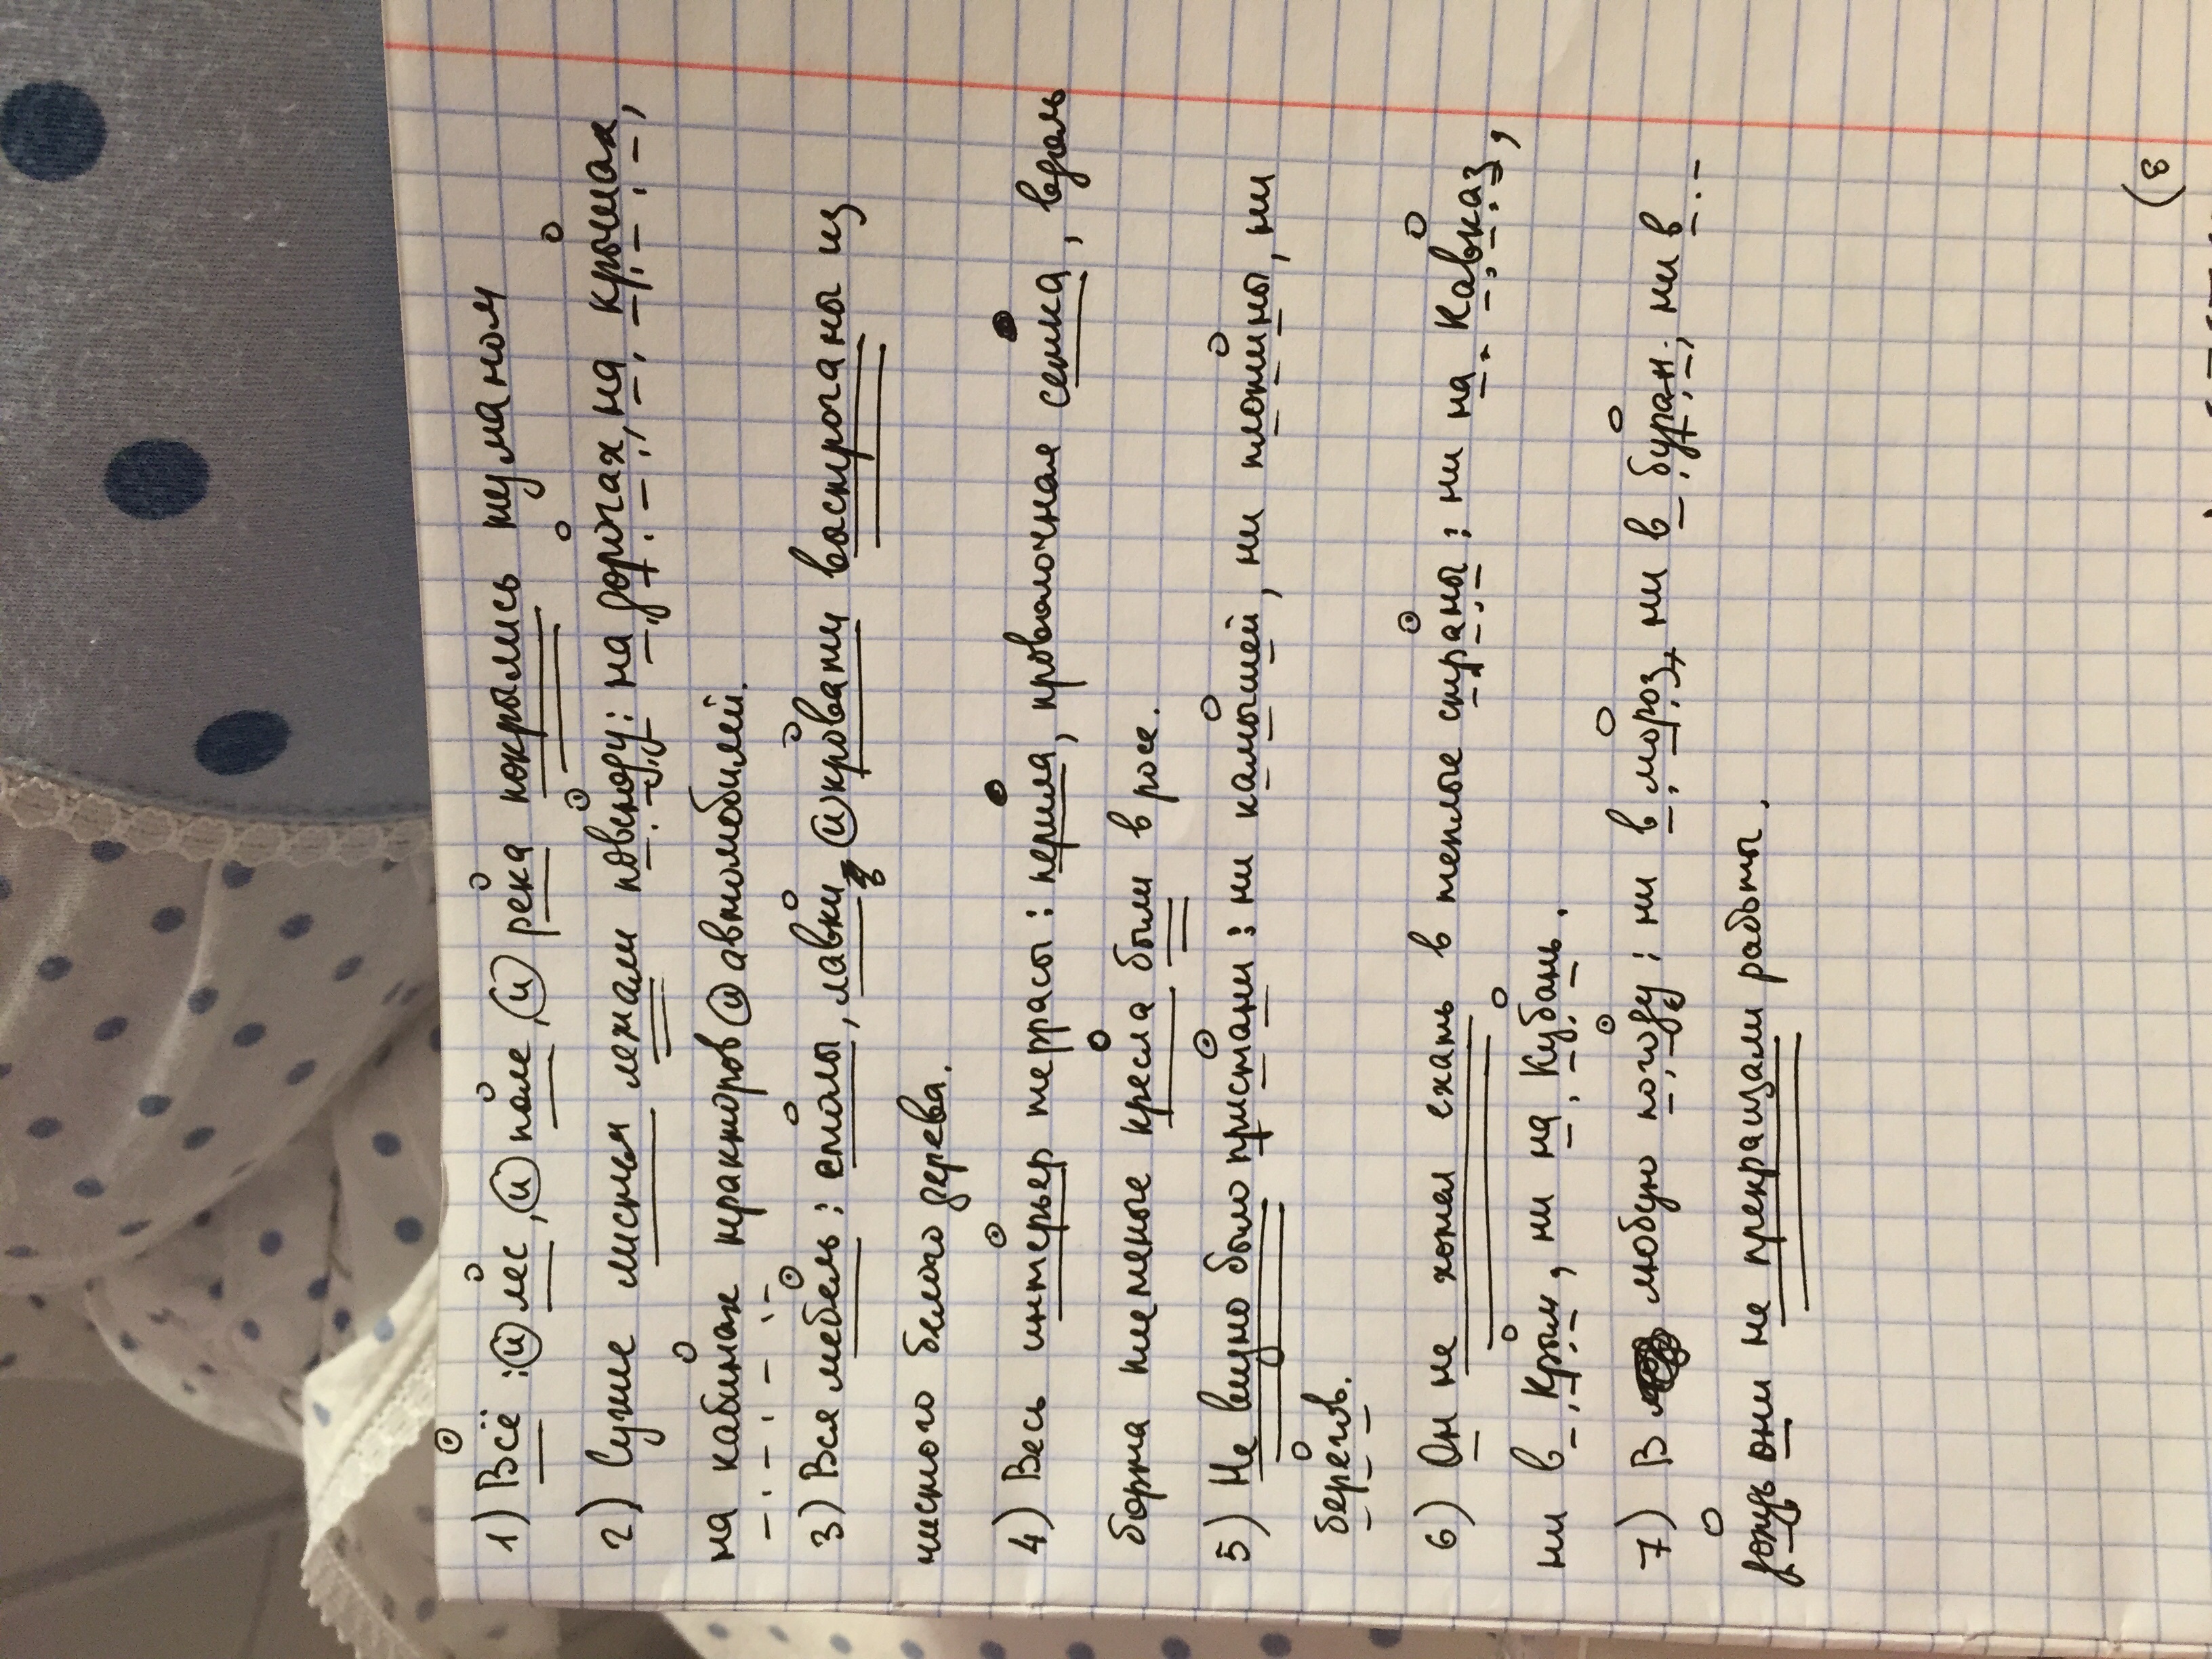 1) Всё :и лес, и поле, и река покрылись туманом
2) Сухие листья лежали повсюду: на дорогах, на крышах,
на кабинах тракторов и автомобилей.
3) Вся мебель: столы, лавки и кровати выстроганы из
чистого белого дерева.
4) Весь интерьер террасы: перила, проволочная сетка, вдоль
борта плетеные кресла были в росе.
5) Не видно было пристани: ни камышей, ни плотины, ни
берегов.
6) Он не хотел ехать в теплые страны: ни на Кавказ,
ни в Крым, ни на Кубань.
7) В любую погоду: ни в мороз, ни в буран, ни в
дождь они не прекращали работы.
3)